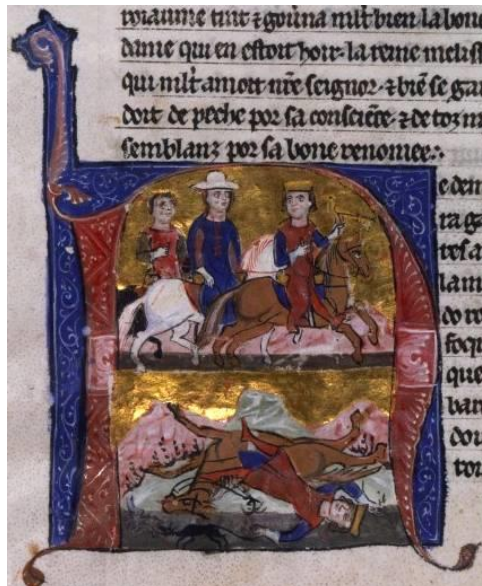 roiaume tint ⁊ gouна ml̄t bien la bone
dame qui en estoit hoir· la reine meliss
qui ml̄t amoit nr̄e seignor· ⁊ biē se gar
doit de peche por sa consciēce· ⁊ de toz m
semblanz por sa bone renomee:·
e dem
ra ga
tes a
la m
do re
que
bar
dou
tou